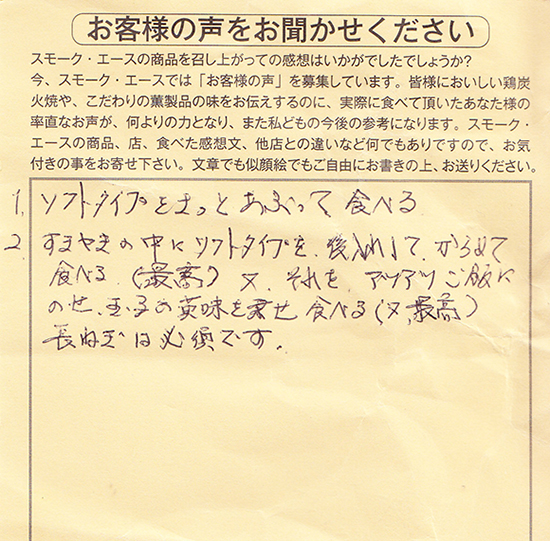 お客様の声をお聞かせください
スモーク・エースの商品を召し上がっての感想はいかがでしたでしょうか?
今、スモーク・エースでは「お客様の声」を募集しています。皆様においしい鶏炭
火焼や、こだわりの薫製品の味をお伝えするのに、実際に食べて頂いたあなた様の
率直なお声が、何よりの力となり、また私どもの今後の参考になります。スモーク・
エースの商品、店、食べた感想文、他店との違いなど何でもありですので、お気
付きの事をお寄せ下さい。文章でも似顔絵でもご自由にお書きの上、お送りください。
1. ソフトタイプをさっとあぶって食べる
2. すきやきの中にソフトタイプを、後入れして、からめて
食べる (最高) 又、それを、アツアツご飯に
のせ、玉子の黄味を乗せ食べる(又、最高)
長ねぎは必須です。